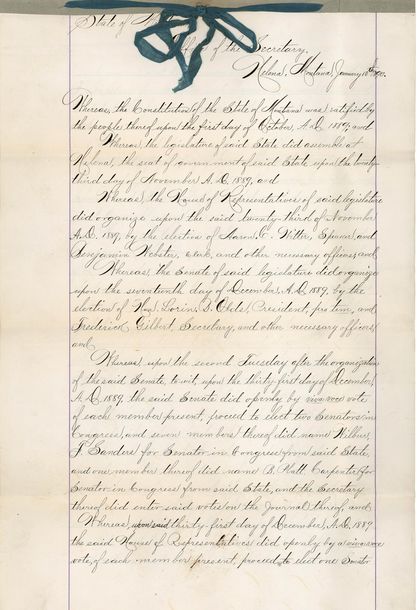 State of
Office of the Secretary,
Helena, Montana, January
Whereas, the Constitution of the State of Montana was ratified by
the people thereof upon the first day of October, A.D. 1889, and
Whereas, the legislature of said State did assemble at
Helena, the seat of government of said State upon the twenty-
third day of November A.D. 1889, and
Whereas, the House of Representatives of said legislature
did organize upon the said twenty-third of November
A.D. 1889, by the election of Aaron C. Witter, Speaker, and
Benjamin Webster, Clerk, and other necessary officers, and
Whereas, the Senate of said legislature did organize
upon the seventeenth day of December, A.D. 1889, by the
election of Hon. President, pro tem, and
Frederick Gilbert, Secretary, and other necessary officers,
and
Whereas, upon the second Tuesday after the organization
of the said Senate, to wit, upon the thirty-first day of December,
A.D. 1889, the said Senate did openly by viva voce vote
of each member present, proceed to elect two Senators in
Congress, and seven members thereof did name Wilbur
F. Sanders for Senator in Congress from said State,
and one member thereof did name B. Platt Carpenter for
Senator in Congress from said State, and the Secretary
thereof did enter said votes on the Journal thereof, and
Whereas, upon said thirty-first day of December, A.D. 1889
the said House of Representatives did openly by a viva voce
vote, of each member present, proceed to elect one Senator